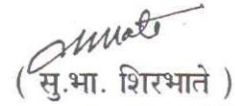 ( सु.भा. शिरभाते )